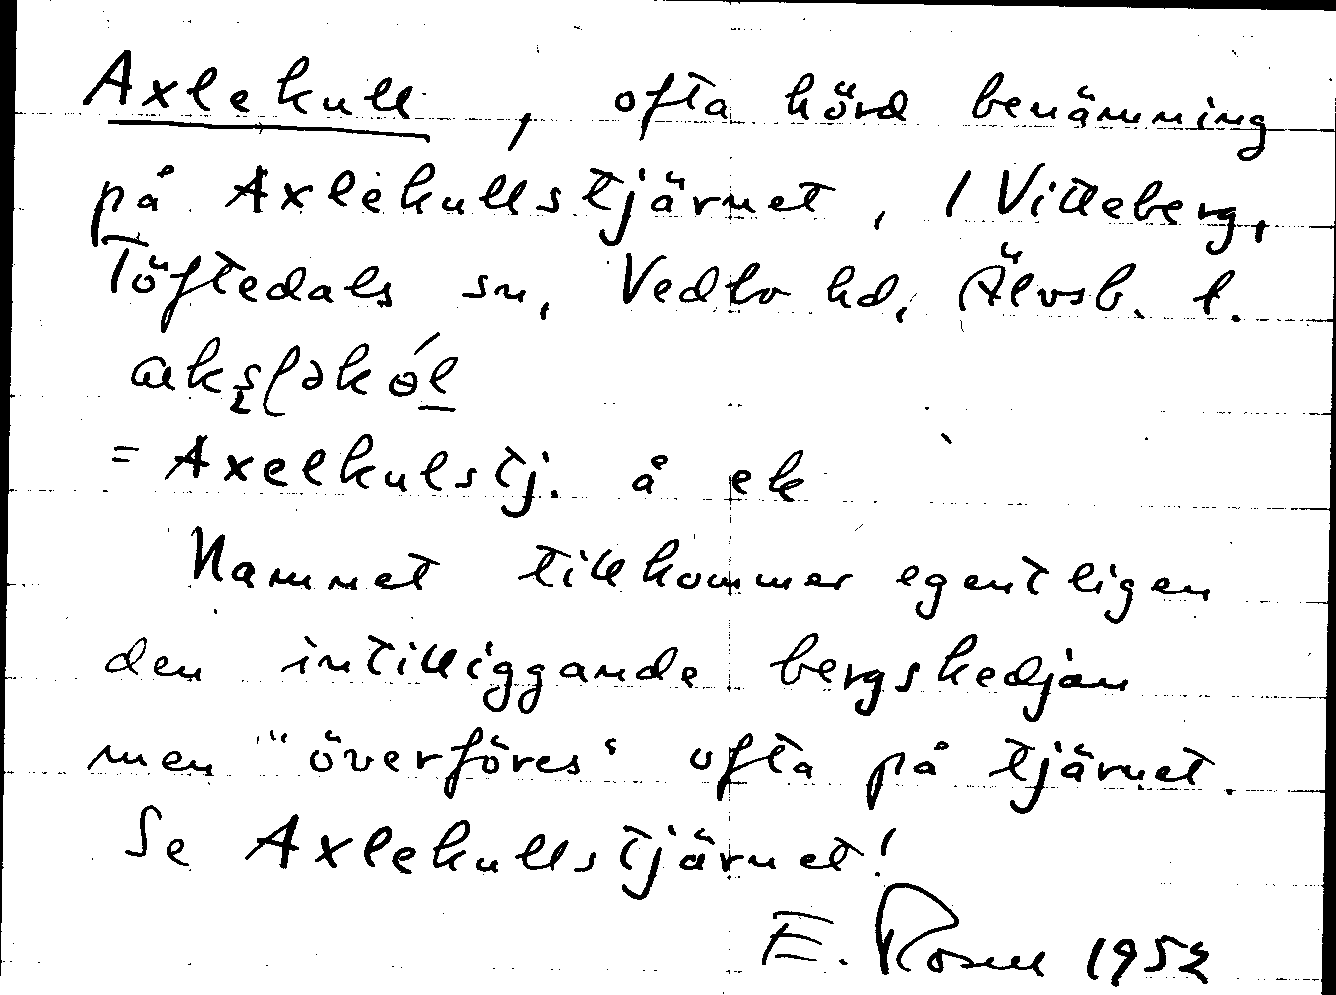 Axlekull, ofta hörd benämning
på Axlekullstjärnet, i Vitteberg,
Töftedals sn, Vedbo hd, Älvsb. l.
= Axelkulstj. å ek
Namnet tillkommer egentligen
den intilliggande bergskedjan
men "överföres" ofta på tjärnet.
Se Axlekullstjärnet!
E. 1952